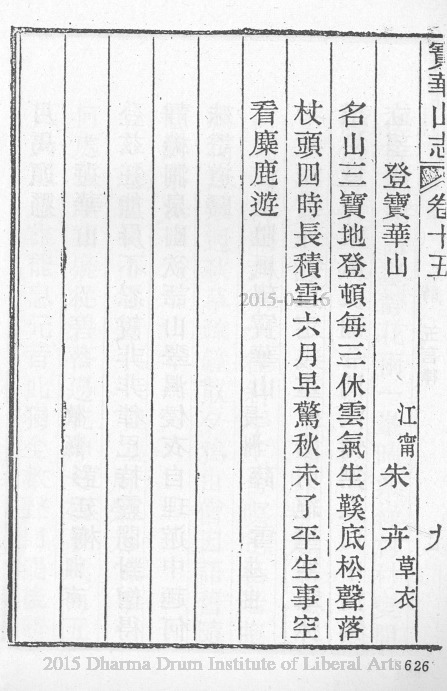 寶華山志 卷十五 九
登寶華山 江甯 朱卉 草衣
名山三寶地登頓每三休雲氣生鞵底松聲落
杖頭四時長積雪六月早驚秋未了平生事空
看麋鹿遊
2015-04-16
2015 Dharma Drum Institute of Liberal Arts
626